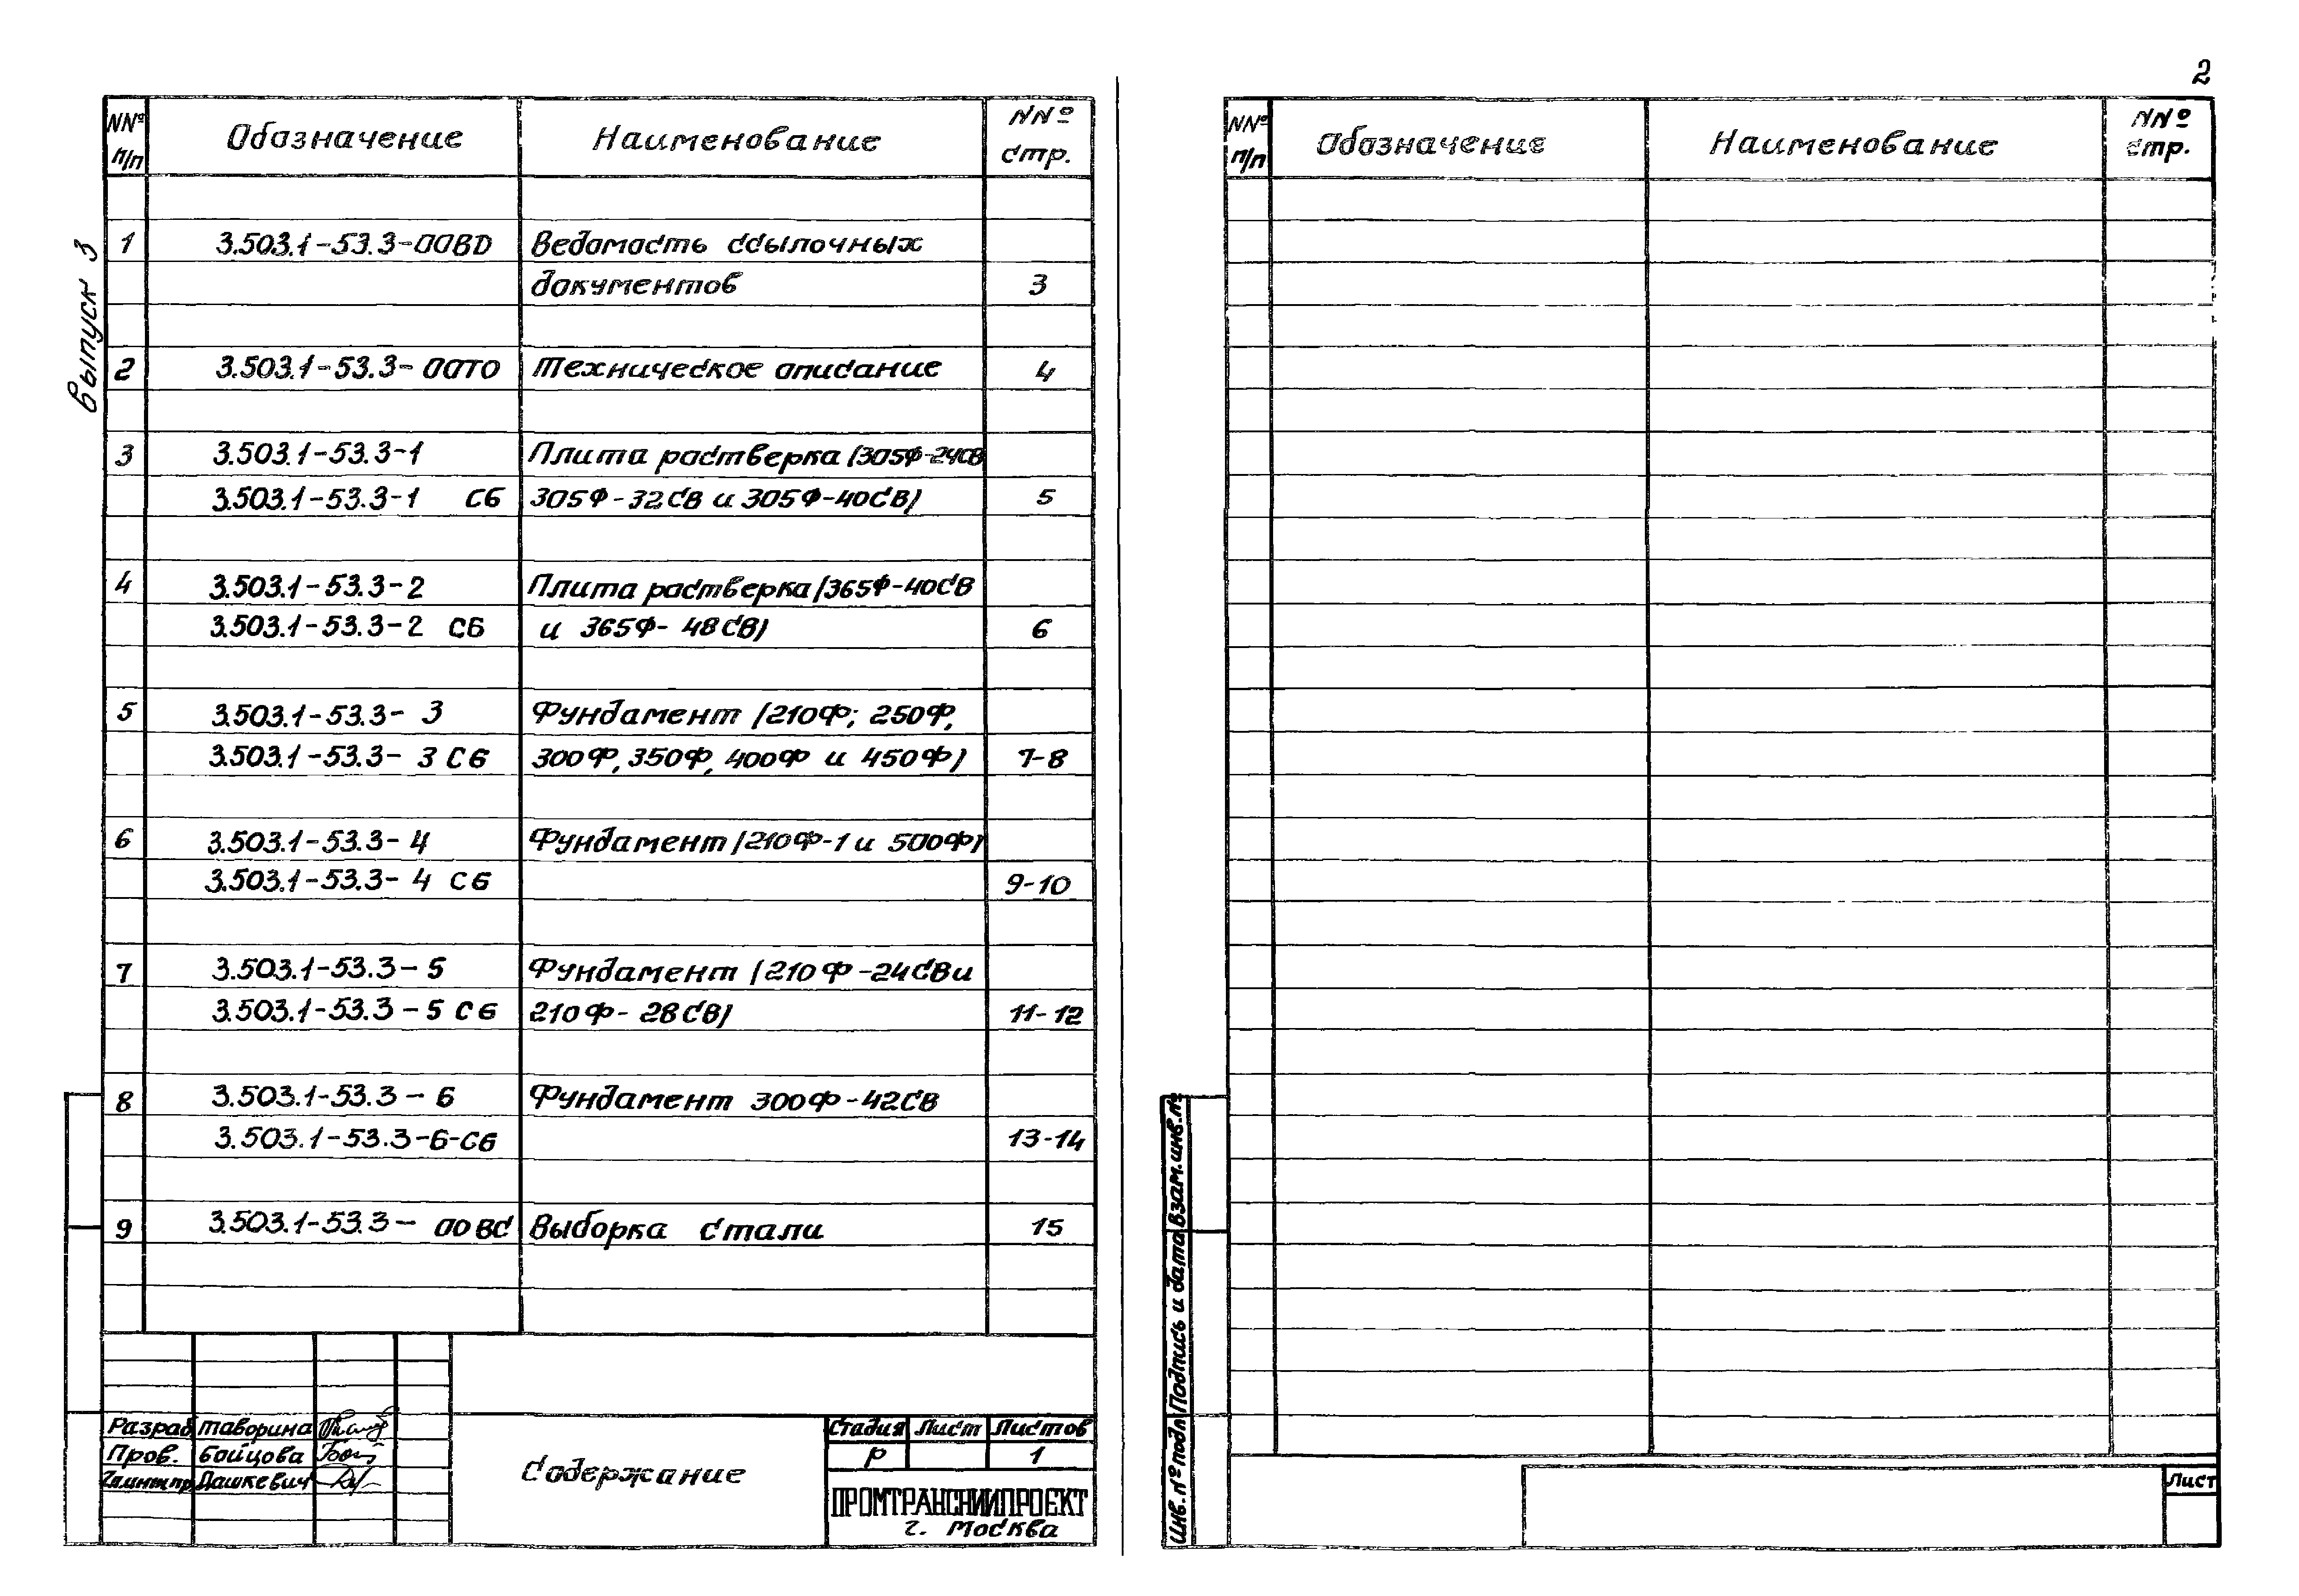 2
Выпуск 3
NNº п/п Обозначение Наименование NNº стр.
1 3.503.1-53.3-00ВD Ведомость ссылочных
документов 3
2 3.503.1-53.3-00ТО Техническое описание 4
3 3.503.1-53.3-1 Плита ростверка (305Ф-24СВ
3.503.1-53.3-1 СБ 305Ф-32СВ и 305Ф-40СВ) 5
4 3.503.1-53.3-2 Плита ростверка (365Ф-40СВ
3.503.1-53.3-2 СБ и 365Ф-48СВ) 6
5 3.503.1-53.3-3 Фундамент (210Ф; 250Ф,
3.503.1-53.3-3 СБ 300Ф, 350Ф, 400Ф и 450Ф) 7-8
6 3.503.1-53.3-4 Фундамент (210Ф-1 и 500Ф)
3.503.1-53.3-4 СБ 9-10
7 3.503.1-53.3-5 Фундамент (210Ф-24СВ и
3.503.1-53.3-5 СБ 210Ф-28СВ) 11-12
8 3.503.1-53.3-6 Фундамент 300Ф-42СВ
3.503.1-53.3-6-СБ 13-14
9 3.503.1-53.3-00ВС Выборка стали 15
Разраб Таворина
Пров. Бойцова
Гл.инж.пр Дашкевич
Содержание
Стадия Лист Листов
Р 1
ПРОМТРАНСНИИПРОЕКТ
г. Москва
NNº п/п Обозначение Наименование NNº стр.
Взам.инв.№
Подпись и дата
Инв. № подл
Лист